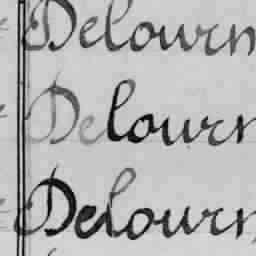 Delourn
Delourn
Delourn